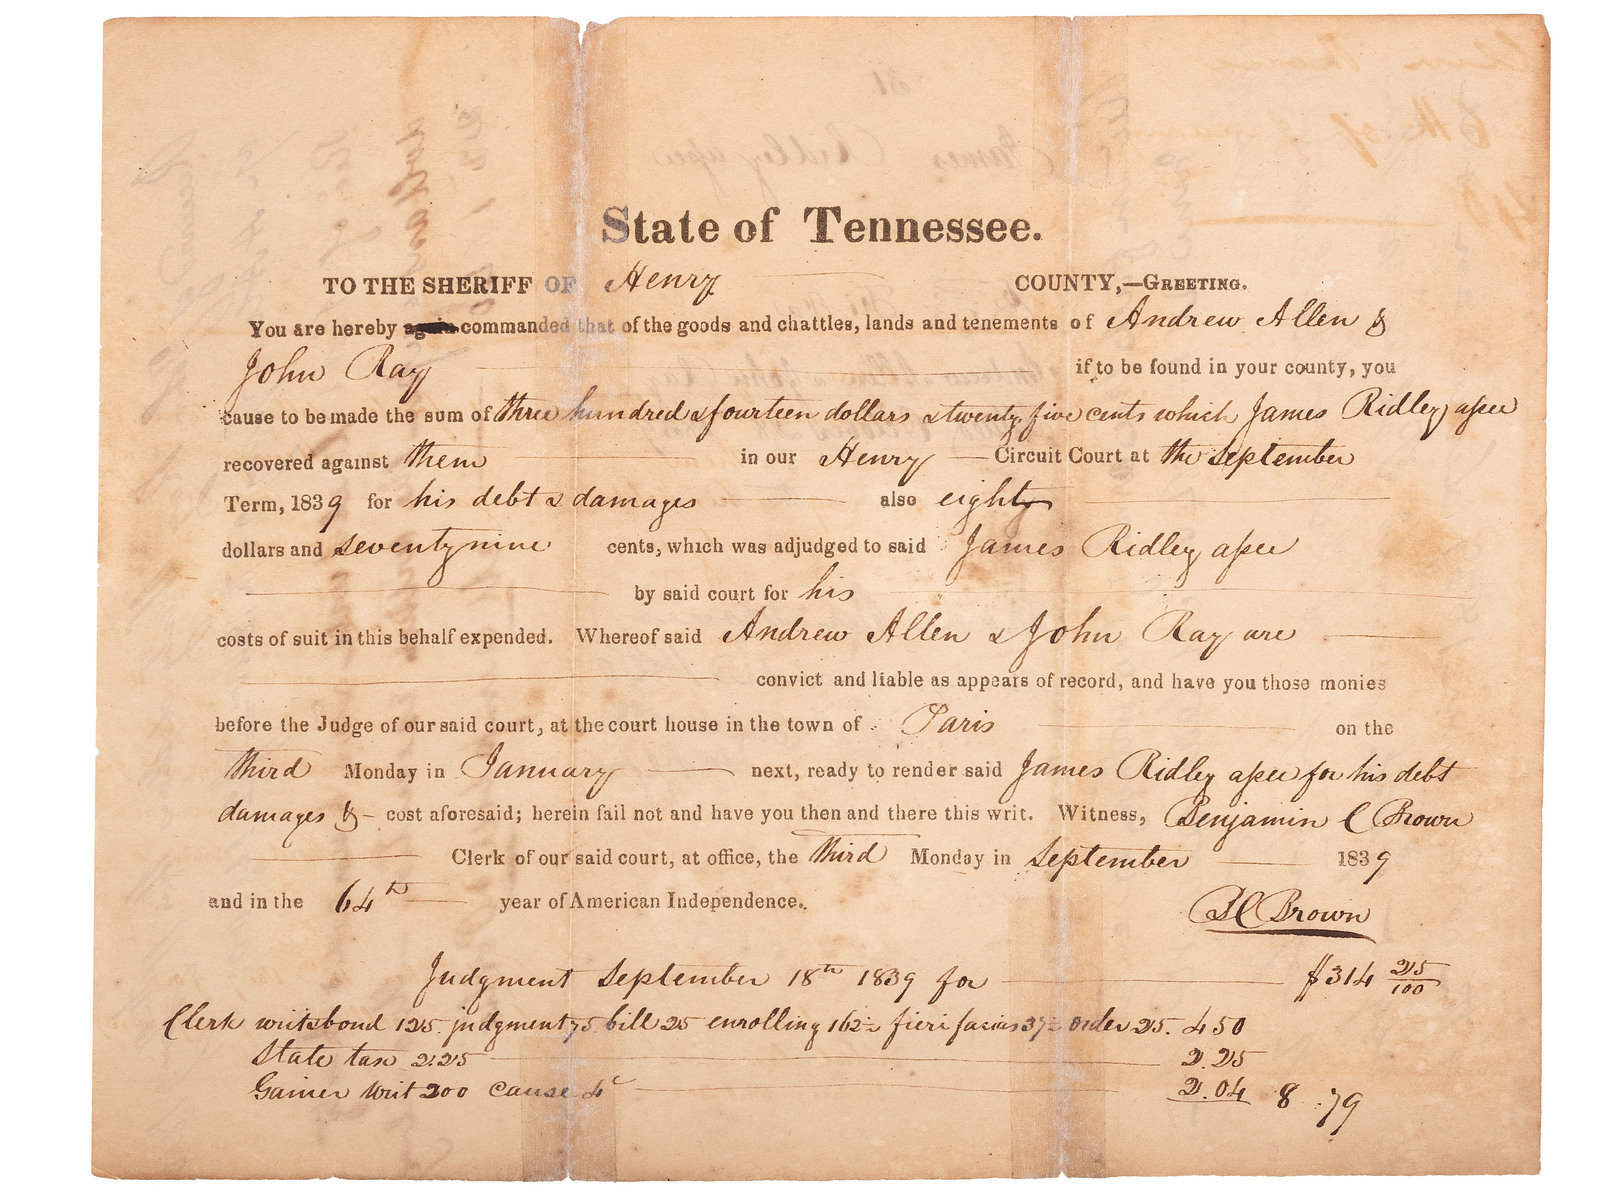 State of Tennessee.
TO THE SHERIFF OF Henry COUNTY,—GREETING.
You are hereby again commanded that of the goods and chattles, lands and tenements of Andrew Allen &
John Ray if to be found in your county, you
cause to be made the sum of three hundred & fourteen dollars & twenty five cents which James Ridley assee
recovered against them in our Henry Circuit Court at the September
Term, 1839 for his debt & damages also eighty
dollars and seventy nine cents, which was adjudged to said James Ridley assee
by said court for his
costs of suit in this behalf expended. Whereof said Andrew Allen & John Ray are
convict and liable as appears of record, and have you those monies
before the Judge of our said court, at the court house in the town of Paris on the
third Monday in January next, ready to render said James Ridley assee for his debt
damages & cost aforesaid; herein fail not and have you then and there this writ. Witness, Benjamin C Brown
Clerk of our said court, at office, the third Monday in September 1839
and in the 64th year of American Independence.
B C Brown
Judgment September 18th 1839 for $314 25/100
Clerk writ & bond 125. judgment 75 bill 25 enrolling 162½ fieri facias 37½ order 25. 4 50
State tax 2.25 2.25
Gainer writ 200 cause 4c 2.04 8.79